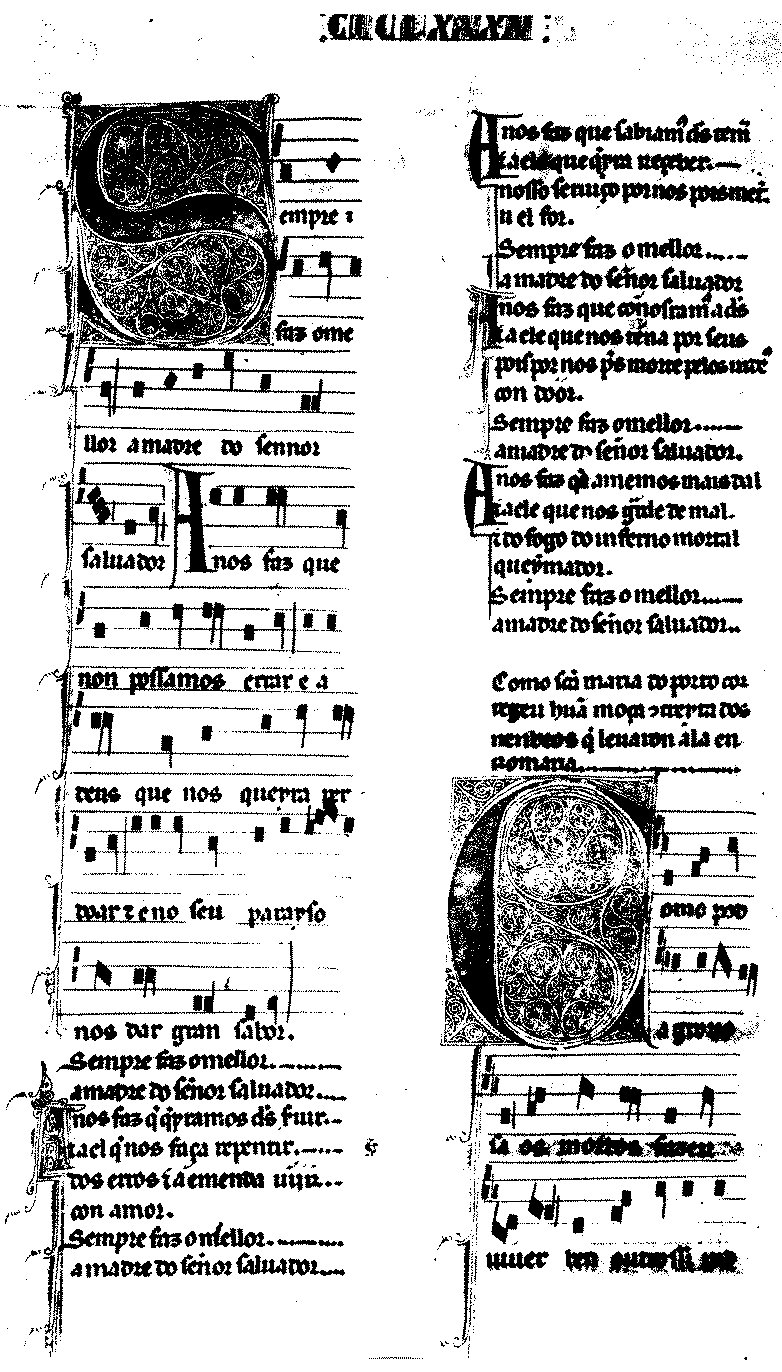 Sempre i
faz ome
llor a madre do sennor
saluador A nos faz que
non possamos errar e a
deus que nos queyra per
dõar z eno seu parayso
nos dar gran sabor.
Sempre faz o mellor.
a madre do señor saluador.
A nos faz q̇ q̇yramos d̃s seruir.
tael q̇ nos faça repentir.
dos erros
con amor.
Sempre faz o mellor.
a madre do señor saluador.
A nos faz que sabiam̃ d̃s
tael que q̇yra
nosso seruiço por nos
u el for.
Sempre faz o mellor.
a madre do señor saluador
A nos faz que
tael que nos teña por seus
pois por nos p̃s morte pelos
con door.
Sempre faz o mellor.
a madre do señor saluador.
A nos faz q̇ amemos mais dal
tael que nos g̃de de mal.
i do fogo do inferno mortal
queymador.
Sempre faz o mellor.
a madre do señor saluador.
Como sc̃a maria do porto cor
regeu hũa moça
nenbros q̇ leuaron ala en
romaria.
Como pod
a
sa os mortos fazer
uiuer ben